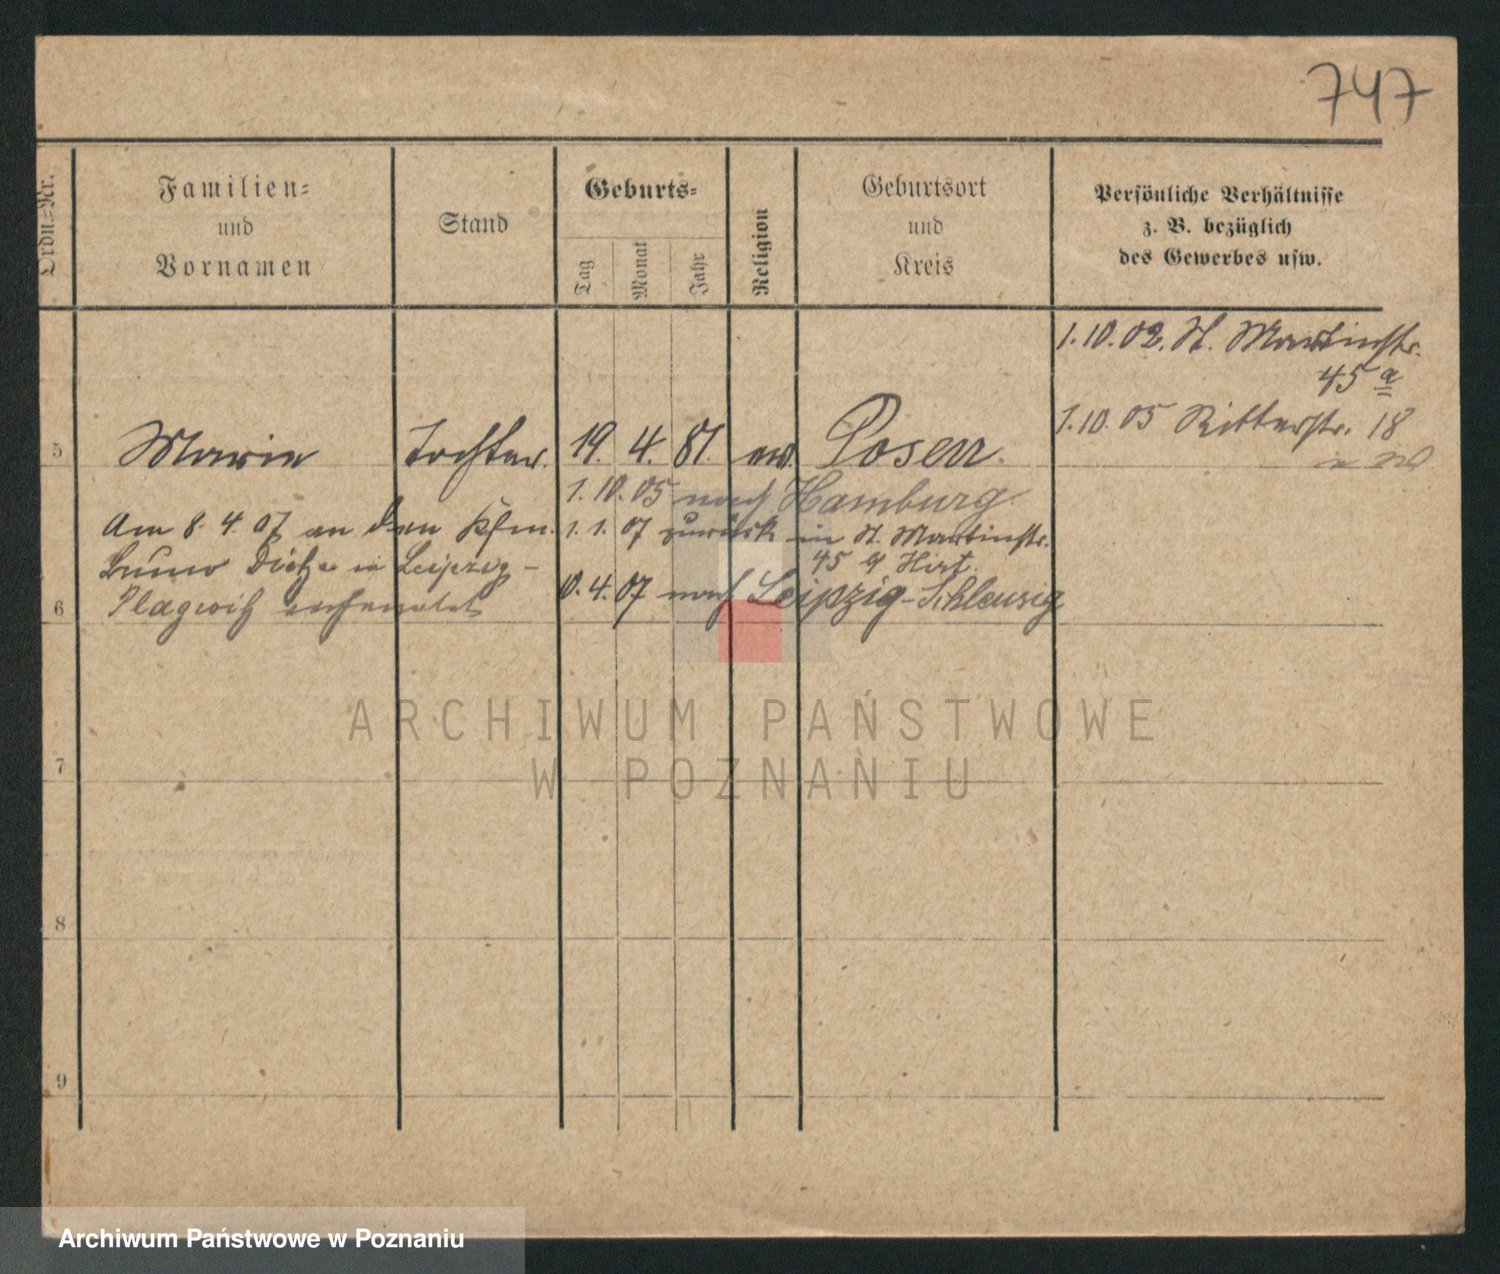 747
Ordn.-Nr.
Familien-
und
Vornamen
Stand
Geburts-
Tag
Monat
Jahr
Religion
Geburtsort
und
Kreis
Persönliche Verhältnisse
z. B. bezüglich
des Gewerbes usw.
1.10.02. St. Martinstr.
45 a
1.10.05 Ritterstr. 18
5 Marie Tochter. 19. 4. 81. ev. Posen.
1. 10. 05 nach Hamburg.
Am 8. 4. 07 an den Kfm. 1. 1. 07 zurück in St. Martinstr.
45 a Hirt.
Bruno Dietze in Leipzig-
10. 4. 07 nach Leipzig-Schleusig
6 Plagwitz verheiratet
7
8
9
ARCHIWUM PAŃSTWOWE
W POZNANIU
Archiwum Państwowe w Poznaniu